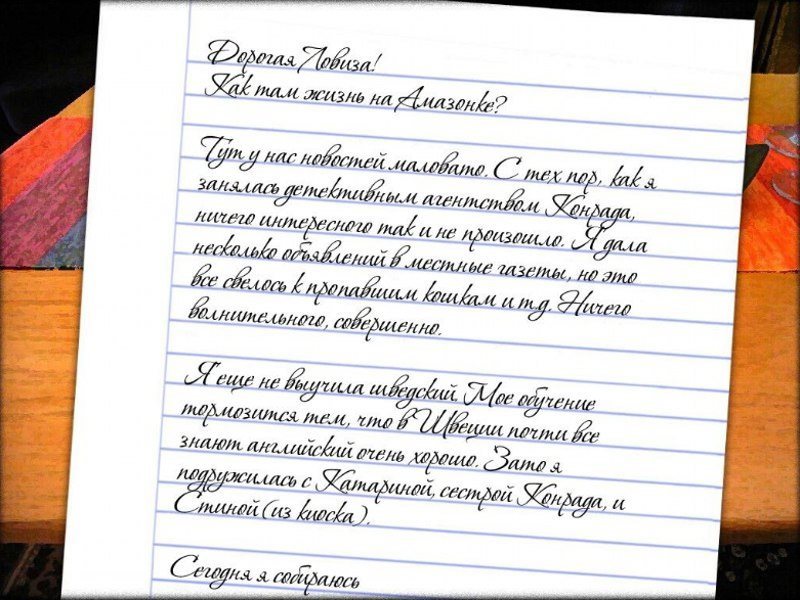 Дорогая Ловиза!
Как там жизнь на Амазонке?
Тут у нас новостей маловато. С тех пор, как я
занялась детективным агентством Конрада,
ничего интересного так и не произошло. Я дала
несколько объявлений в местные газеты, но это
все свелось к пропавшим кошкам и т.д. Ничего
волнительного, совершенно.
Я еще не выучила шведский. Мое обучение
тормозится тем, что в Швеции почти все
знают английский очень хорошо. Зато я
подружилась с Катариной, сестрой Конрада, и
Стиной (из киоска).
Сегодня я собираюсь